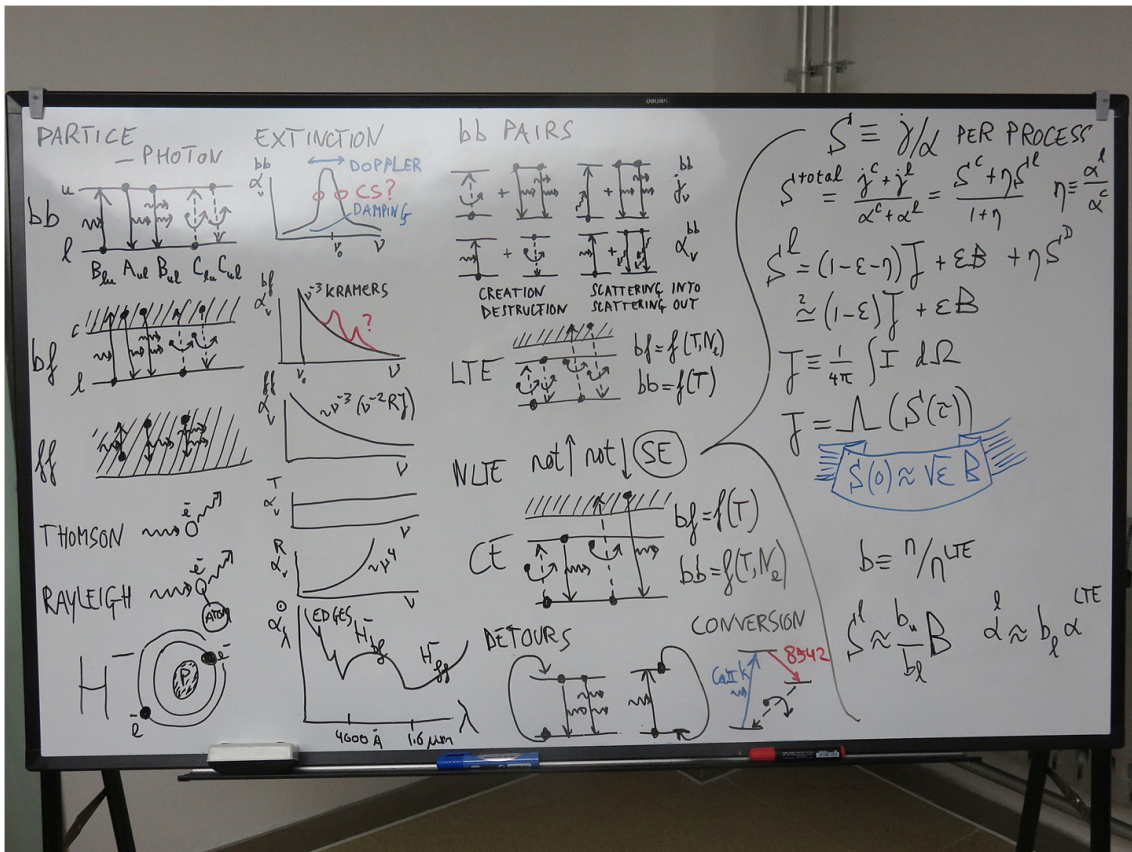 deli
PARTICE
— PHOTON
bb
u
l
B_lu A_ul B_ul C_lu C_ul
bf
c
l
ff
THOMSON
e⁻
RAYLEIGH
e⁻
ATOM
H⁻
P
e⁻
e⁻
EXTINCTION
α_ν^bb
DOPPLER
CS?
DAMPING
ν₀
ν
α_ν^bf
ν⁻³ KRAMERS
?
ν₀
ν
α_ν^ff
~ν⁻³ (ν⁻² RJ)
ν
α_ν^T
ν
α_ν^R
~ν⁴
ν
α_λ^O
EDGES
H⁻_bf
H⁻_ff
λ
4000 Å
1.6 μm
bb PAIRS
+
+
j_ν^bb
+
+
α_ν^bb
CREATION
DESTRUCTION
SCATTERING INTO
SCATTERING OUT
LTE
bf = f(T, N_e)
bb = f(T)
NLTE
not ↑ not ↓ SE
CE
bf = f(T)
bb = f(T, N_e)
DETOURS
CONVERSION
CaII K
8542
S ≡ j/α PER PROCESS
S^total = (j^c + j^l)/(α^c + α^l) = (S^c + ηS^l)/(1+η) η ≡ α^l/α^c
S^l = (1-ε-η)J̅ + εB + ηS^D
≈? (1-ε)J̅ + εB
J ≡ 1/4π ∫ I dΩ
J = Λ(S(τ))
S(0) ≈ √ε B
b ≡ n/n^LTE
S^l ≈ b_u/b_l B α^l ≈ b_l α^LTE